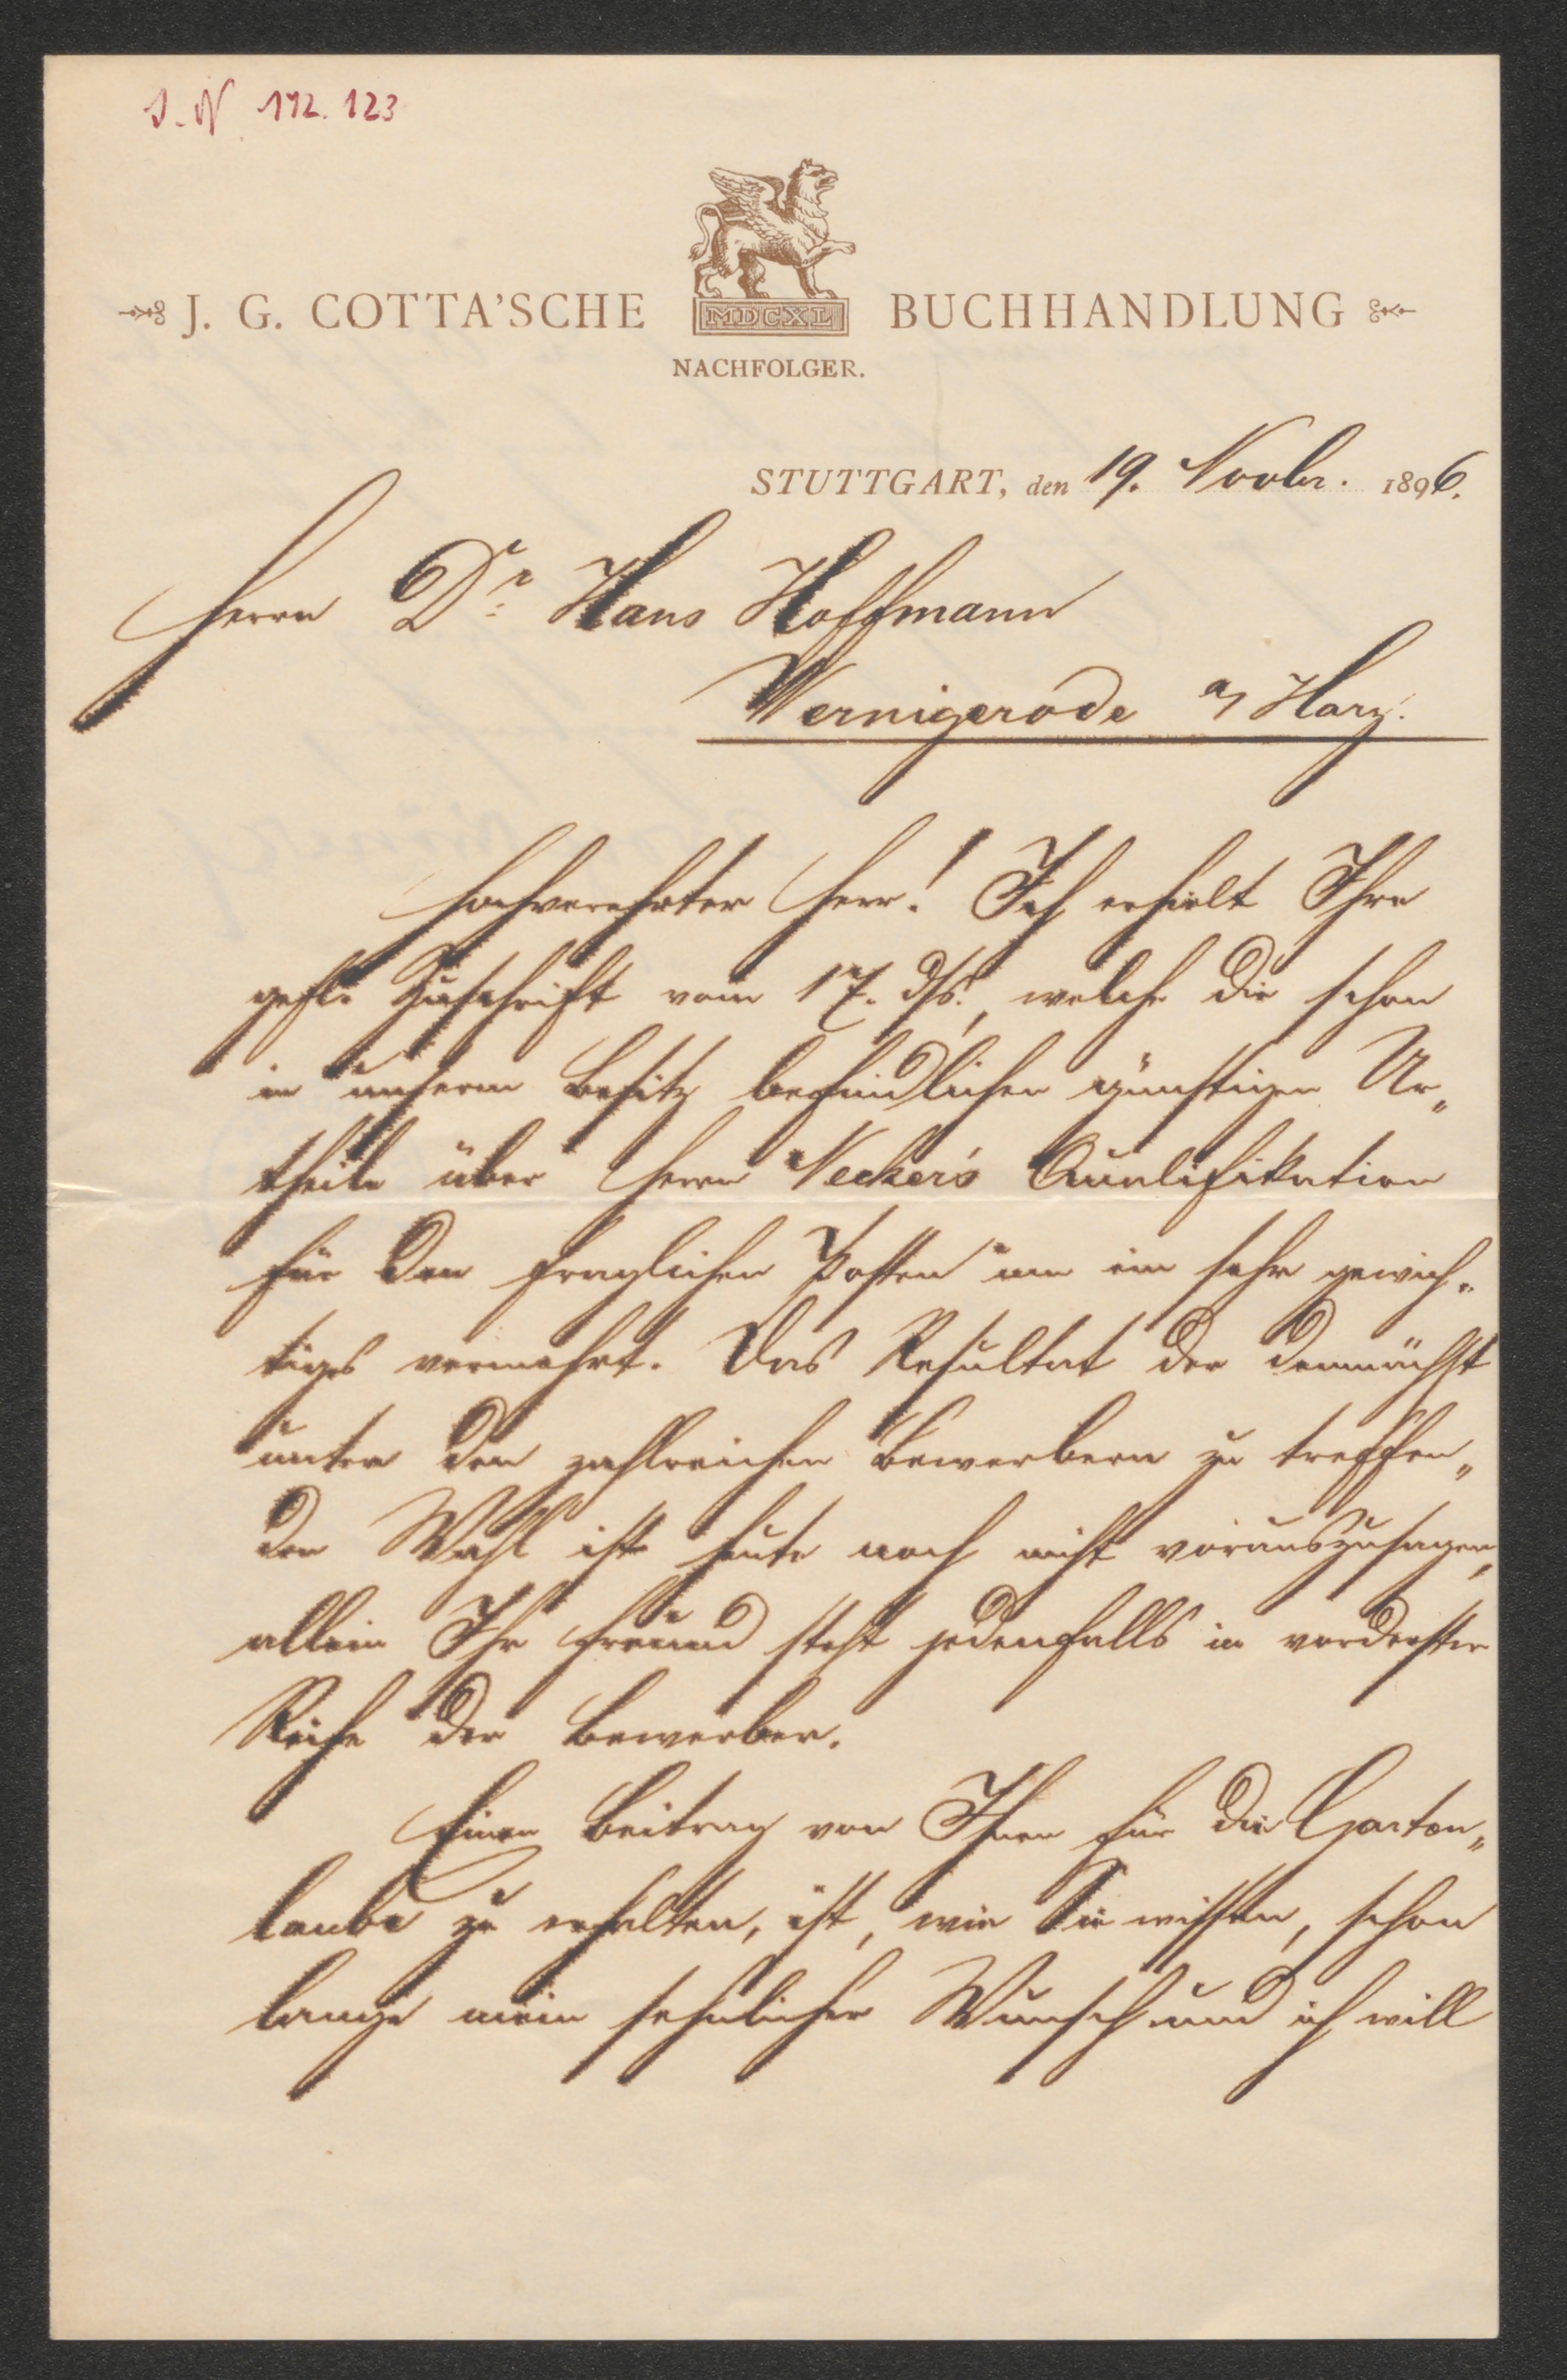 I. N. 172.123
J. G. COTTA'SCHE BUCHHANDLUNG
MDCXL
NACHFOLGER.
STUTTGART, den 19. Novbr. 1896.
Herrn Dr. Hans Hoffmann
Wernigerode a/Harz.
Hochverehrter Herr! Ich erhielt Ihre
gefl. Zuschrift vom 17. ds., welche die schon
in unserm Besitz befindlichen günstigen Ur„
theile über Herrn Necker's Qualifikation
für den fraglichen Posten um ein sehr gewich„
tiges vermehrt. Das Resultat der demnächst
unter den zahlreichen Bewerbern zu treffen„
den Wahl ist heute noch nicht vorauszusagen,
allein Ihr Freund steht jedenfalls in vorderster
Reihe der Bewerber.
Einen Beitrag von Ihnen für die Garten„
laube zu erhalten, ist, wie Sie wissen, schon
lange mein sehnlicher Wunsch und ich will